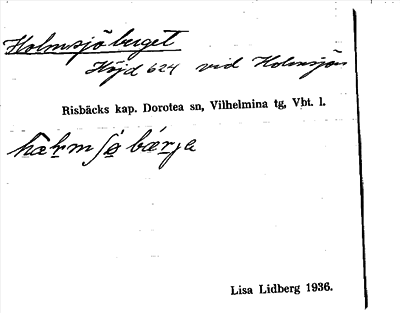 Holmsjöberget
Höjd 624 vid Holmsjön
Risbäcks kap. Dorotea sn, Vilhelmina tg, Vbt. l.
Lisa Lidberg 1936.